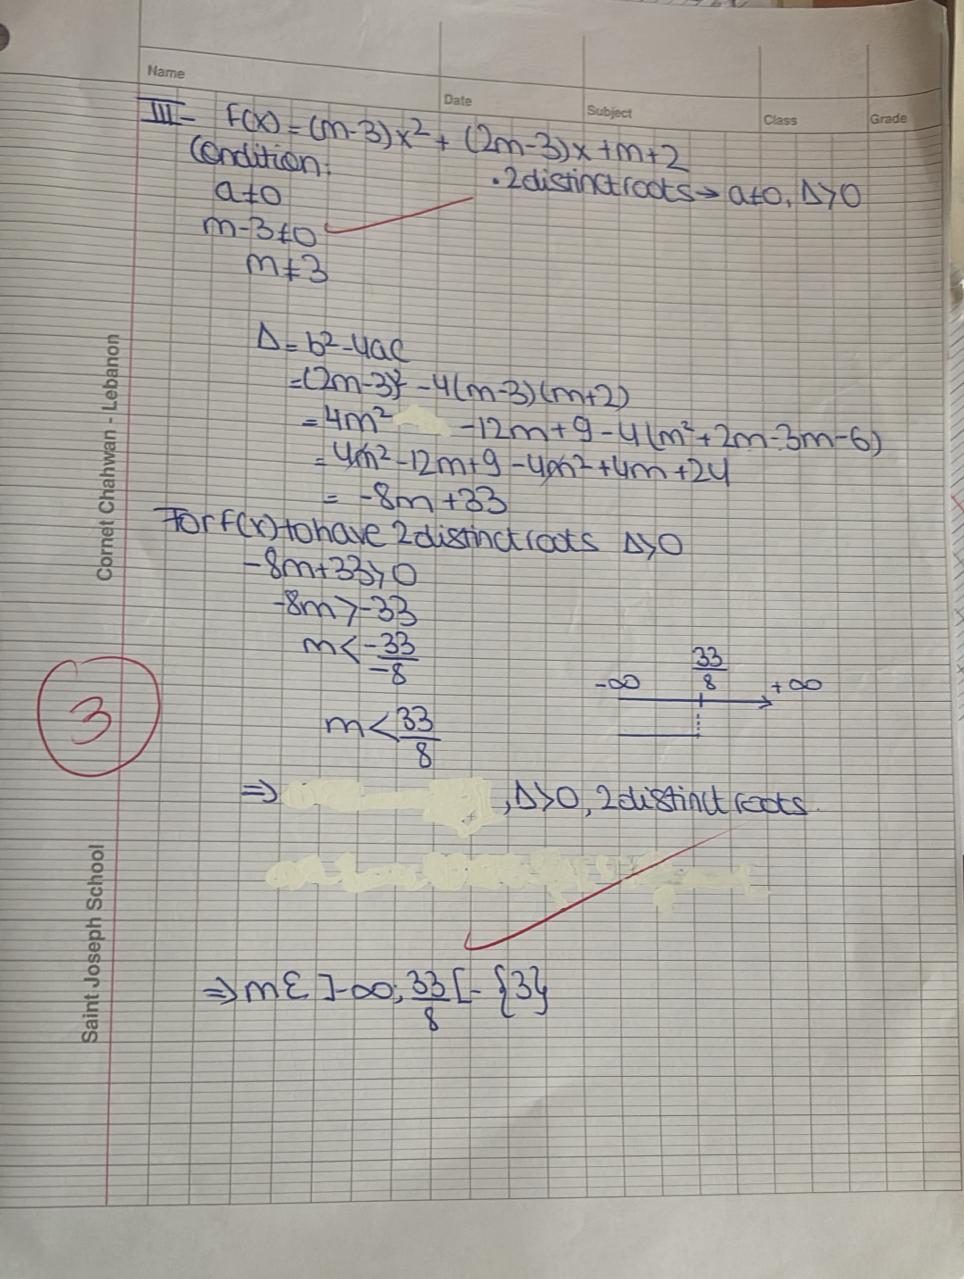 Name
Date
Subject
Class
Grade
III- F(x) = (m-3)x² + (2m-3)x+m+2
Condition:
.2distinct roots → a≠0, Δ>0
a≠0
m-3≠0
m≠3
Δ = b²-4ac
=(2m-3)² -4(m-3)(m+2)
= 4m² -12m+9-4(m²+2m-3m-6)
= 4m²-12m+9-4m²+4m+24
= -8m+33
For F(x) to have 2distinct roots Δ>0
-8m+33>0
-8m>-33
m<-33/-8
m<33/8
-∞ 33/8 +∞
3
⇒ ,Δ>0, 2distinct roots.
⇒ m∈ ]-∞; 33/8 [- {3}
Cornet Chahwan - Lebanon
Saint Joseph School